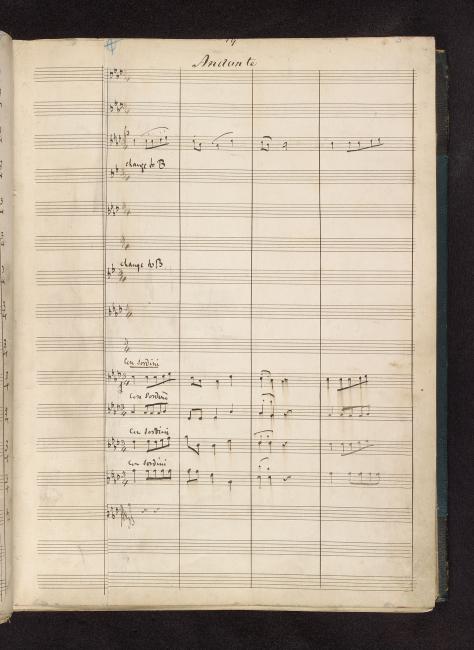 19
Andante
change to B
change to B
Con Sordini
Con Sordini
Con Sordini
Con Sordini